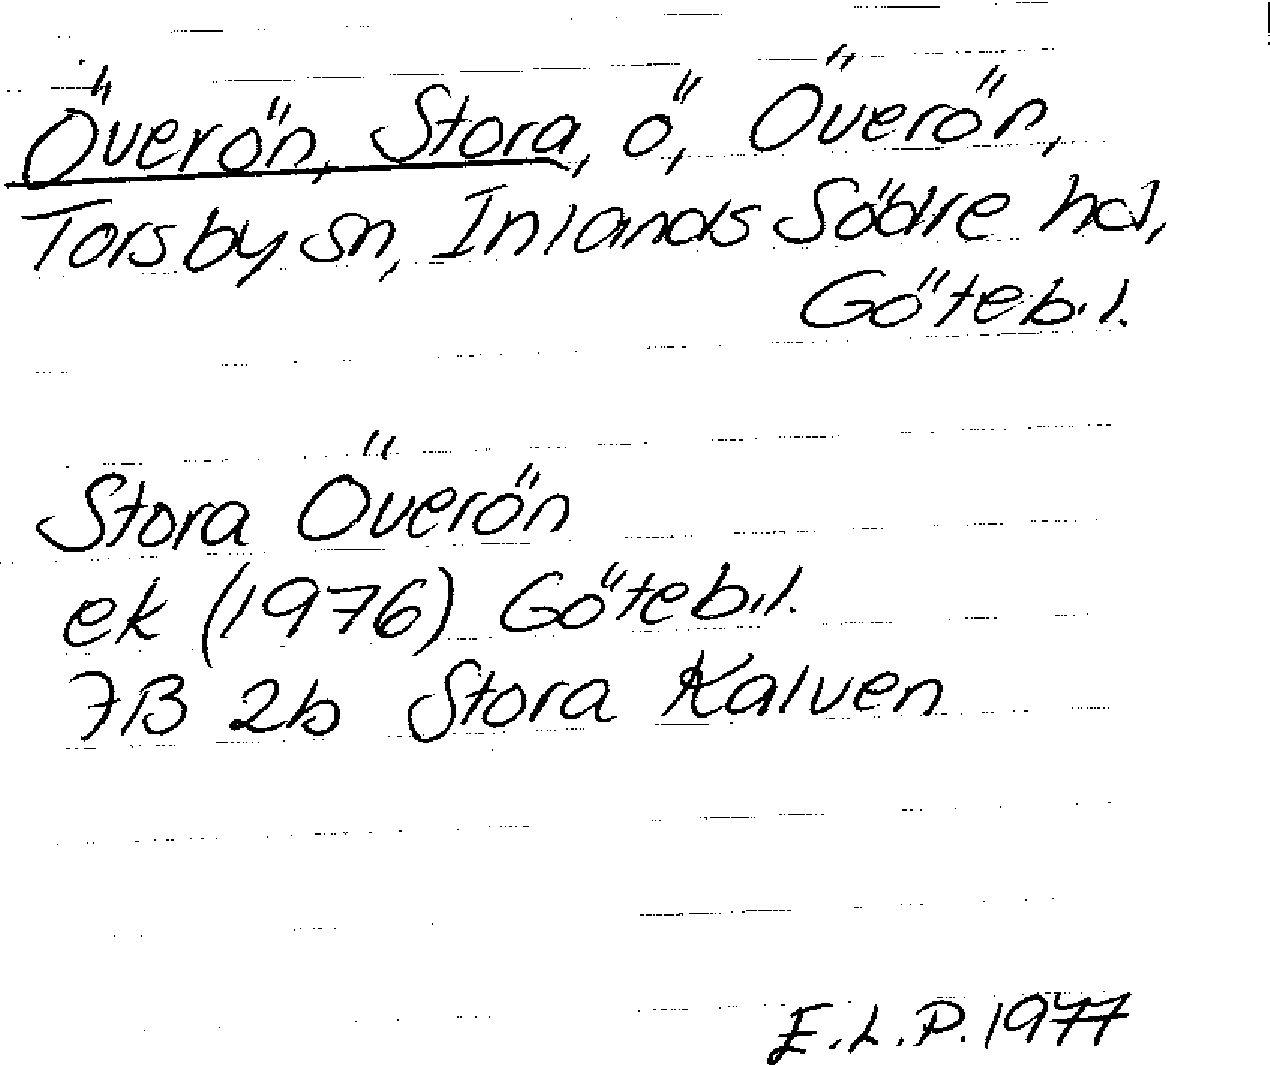 Överön, Stora, ö, Överön,
Torsby sn, Inlands Södre hd,
Göteb.l.
Stora Överön
ek (1976) Göteb.l.
7B 2b Stora Kalven
E.L.P. 1977